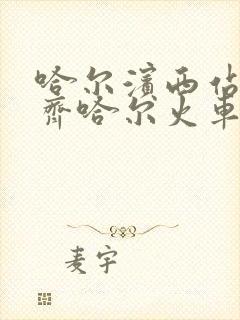 哈尔滨西站
齐哈尔火车
麦宇